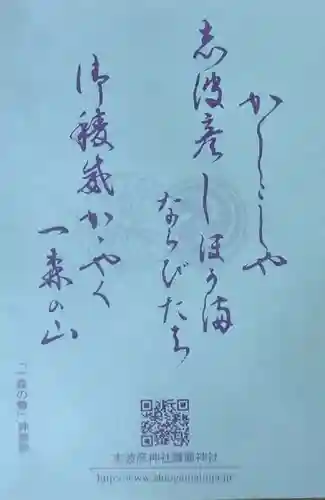 かしこしや
志波彦しほがま
ならびたち
御稜威かゞやく
一森の山
「一森の響」神楽歌
志波彦神社鹽竈神社
http://www.shiogamajinja.jp